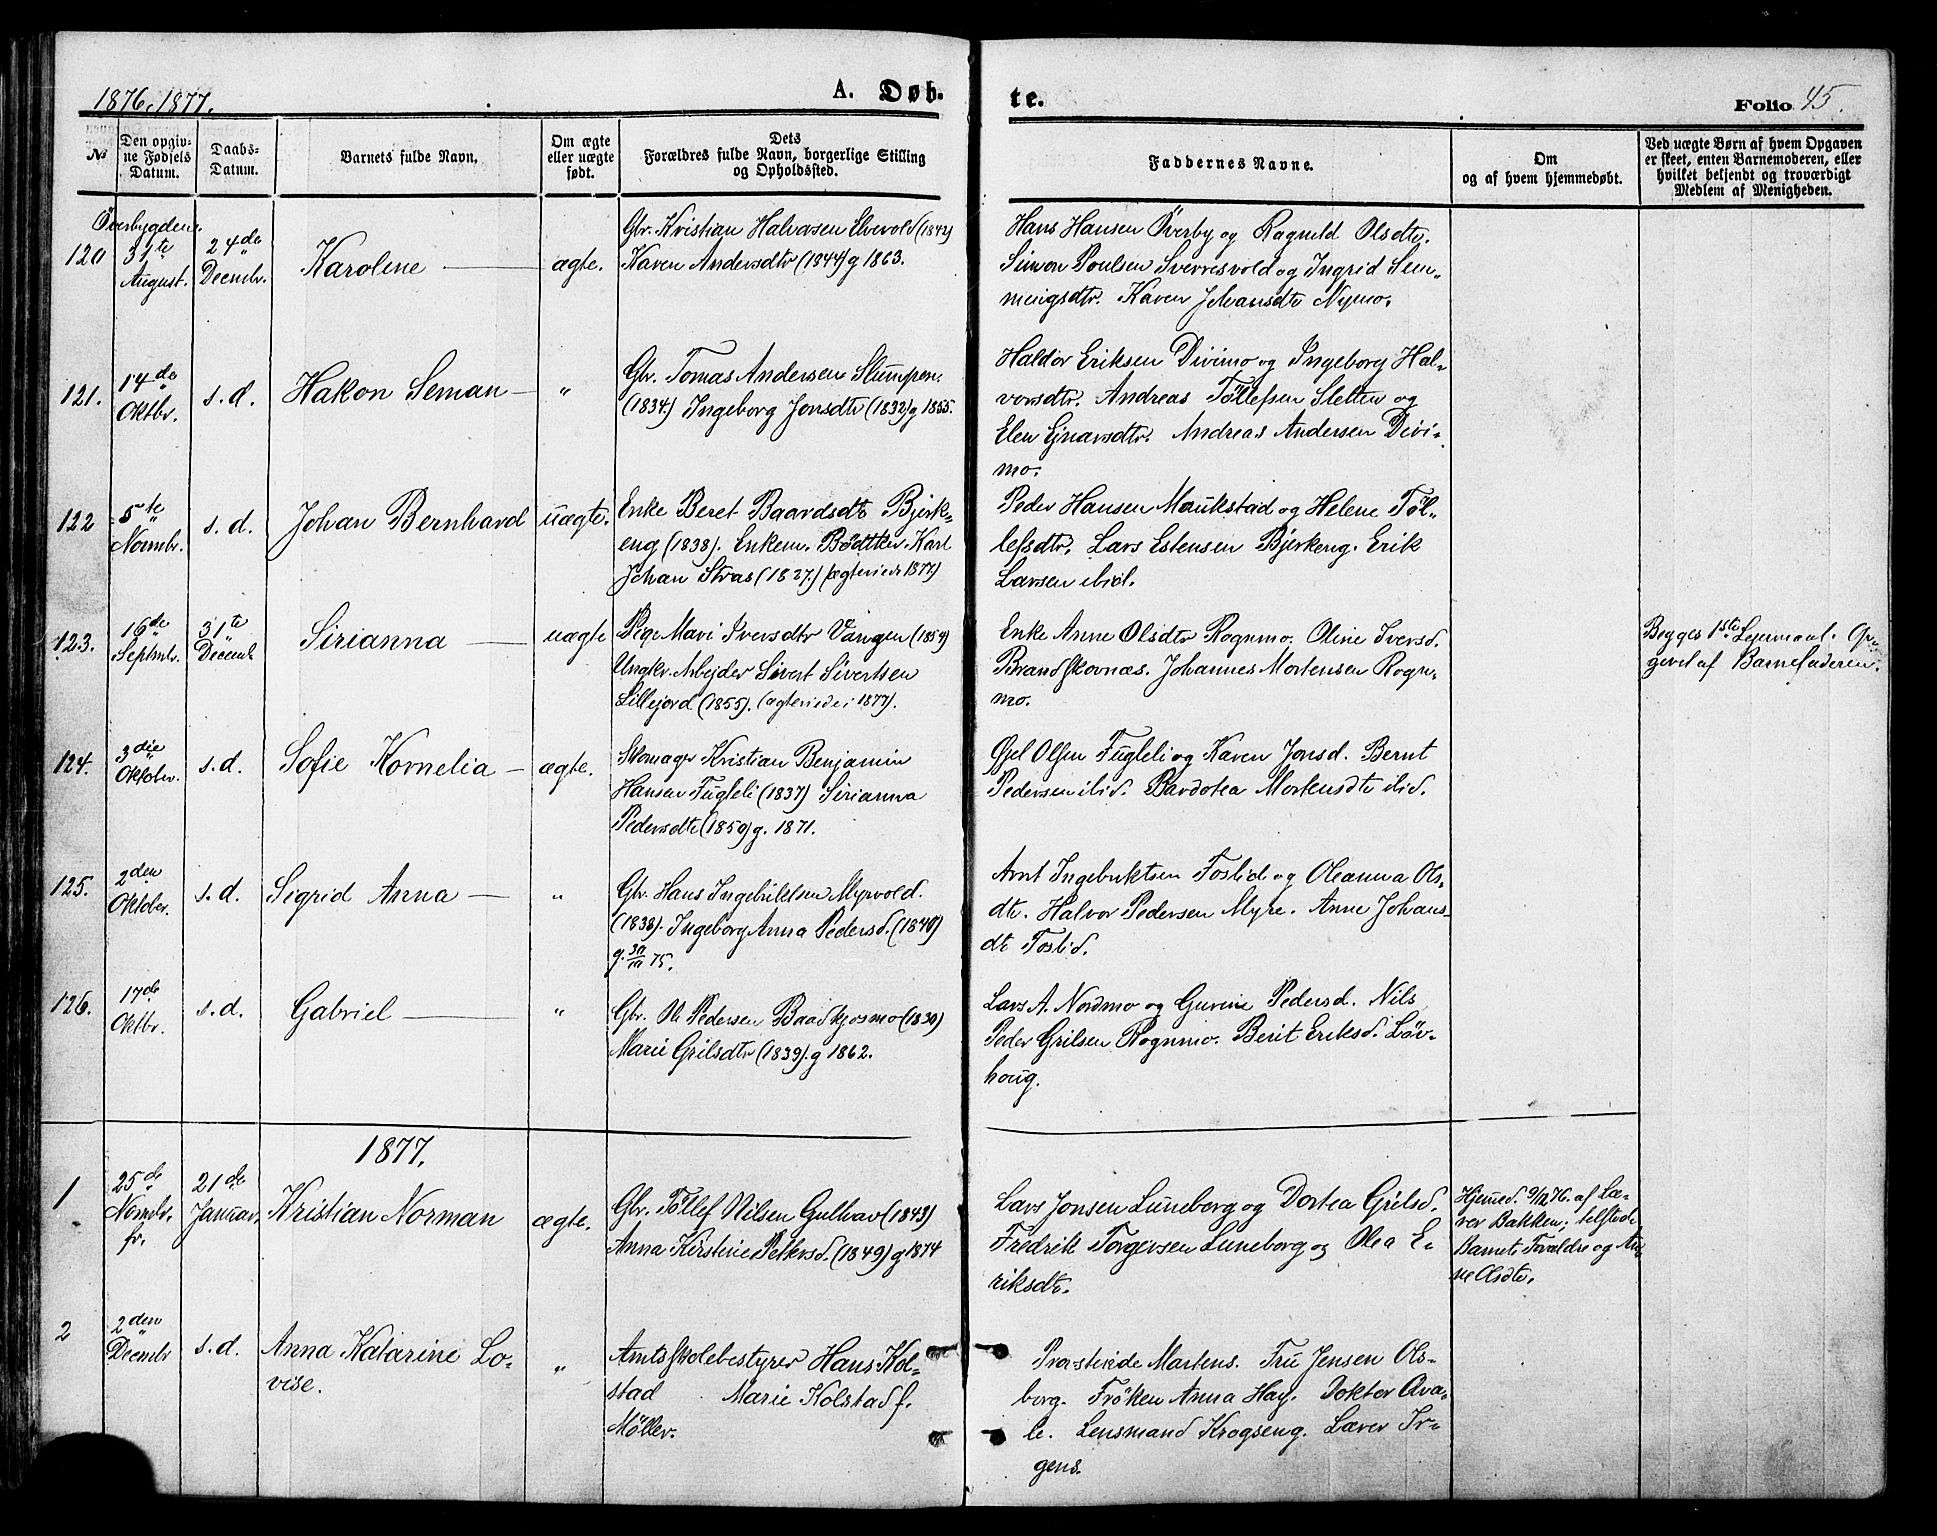 1876, 1877.
A. Døb-
te.
Folio 45.
No
Den opgiv-
ne Fødsels
Datum.
Daabs-
Datum.
Barnets fulde Navn.
Om ægte
eller uægte
født.
Dets
Forældres fulde Navn, borgerlige Stilling
og Opholdssted.
Faddernes Navne.
Om
og af hvem hjemmedøbt.
Ved uægte Børn af hvem Opgaven
er skeet, enten Barnemoderen, eller
hvilket bekjendt og troværdigt
Medlem af Menigheden.
Överbygden.
120
31te
August.
24de
Decembr.
Karolene
ægte.
Gbr. Kristian Halvorsen Elvevold (1842)
Karen Andersdtr (1844) g 1863.
Hans Hansen Överby og Ragnild Olsdtr.
Simon Poulsen Sverresvold og Ingrid Sem-
mingsdtr. Karen Johansdtr Nymo.
121.
14de
Oktbr.
s. d.
Hakon Seman
"
Gbr. Tomas Andersen Slumpen.
(1834.) Ingeborg Jonsdtr (1832) g 1855.
Haldor Eriksen Divimo og Ingeborg Hal-
vorsdtr. Andreas Töllefsen Sletten og
Elen Ejnarsdtr. Andreas Andersen Divi-
mo.
122
5te
Novmbr.
s. d.
Johan Bernhard
uægte.
Enke Beret Baardsdtr Bjerk-
eng (1838). Enkem. Bödtker Karl
Johan Stras (1827.) (ægteviede 1877)
Peder Hansen Maukstad og Helene Töl-
lefsdtr. Lars Estensen Bjerkeng. Erik
Larsen ibid.
123.
16de
Septmbr.
31te
Decembr
Sirianna
uægte
Pige Mari Iversdtr Vangen (1859)
Ungkr. Arbejder Sivert Sivertsen
Lillejord (1855). (ægteviede i 1877).
Enke Anne Olsdtr Rognmo. Oline Iversd.
Brandskovnæs. Johannes Mortensen Rogn-
mo.
Begges 1ste Lejermaal. Op-
givet af Barnefaderen.
124.
3die
Oktober.
s. d.
Sofie Kornelia
ægte.
Skomager Kristian Benjamin
Hansen Fugleli (1837) Sirianna
Pedersdtr (1850) g. 1871.
Ole Olsen Fugleli og Karen Jonsd. Bernt
Pedersen ibid. Bardotea Mortensdtr ibid.
125.
2den
Oktober.
s. d.
Sigrid Anna
"
Gbr. Hans Ingebriktsen Myrvold.
(1838). Ingeborg Anna Pedersd. (1840)
g. 30/10 75.
Arnt Ingebriktsen Foslid og Oleanna Ols-
dtr. Halvor Pedersen Myre. Anne Johans-
dtr Foslid.
126.
17de
Oktbr.
s. d.
Gabriel
"
Gbr. Ole Pedersen Baadkjosmo (1830)
Marie Grilsdtr (1839). g 1862.
Lars A. Nordmo og Gurine Pedersd. Nils
Peder Grilsen Rognmo. Berit Eriksd. Löv-
houg.
1877.
1
25de
Novmbr.
fr.
21de
Januar.
Kristian Norman
ægte.
Gbr. Töllef Nilsen Gulhav (1843)
Anna Kirstine Petersd. (1849) g 1874
Lars Jonsen Luneborg og Dortea Grilsd.
Fredrik Torgersen Luneborg og Olea E-
riksdtr.
Hjemmed. 9/12 76. af Læ-
rer Bakken; tilstede
Barnets Forældre og An-
ne Olsdtr.
2
2den
Decembr
s. d.
Anna Katarine Lo-
vise.
"
Amtsskolebestyrer Hans Kol-
stad Marie Kolstad f.
Möller.
Provstinde Martens. Fru Jensen Ols-
borg. Fröken Anna Hay. Doktor Qva-
le. Lensmand Krogseng. Lærer Ir-
gens.